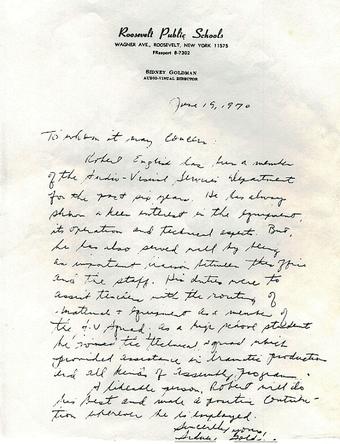 Roosevelt Public Schools
WAGNER AVE., ROOSEVELT, NEW YORK 11575
FReeport 8-7202
SIDNEY GOLDMAN
AUDIO-VISUAL DIRECTOR
June 19, 1970
To whom it may concern:
Robert English has been a member
of the Audio-Visual Services Department
for the past six years. He has always
shown a keen interest in the equipment,
its operation and technical aspects. But,
he has also served well by being
an important liaison between this office
and the staff. His duties were to
assist teachers with the routing of
materials + equipment as a member of
the A.V. Squad, as a high school student
he joined the technical squad which
provided assistance in dramatic production
and all kinds of assembly programs.
A likeable person, Robert will do
his best and make a positive contribu-
tion wherever he is employed.
Sincerely yours,
Sidney Goldman